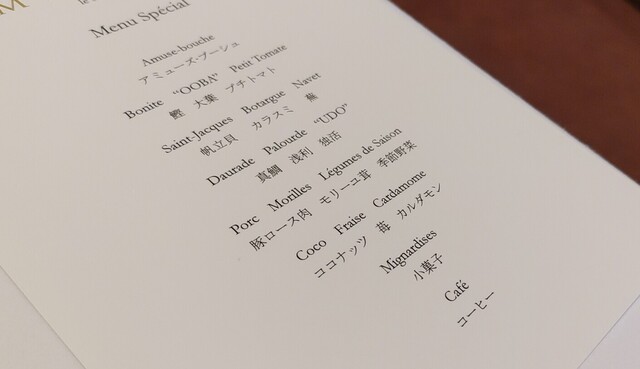 M
le
Menu Spécial
Amuse-bouche
アミューズ・ブーシュ
Bonite “OOBA” Petit Tomate
鰹 大葉 プチトマト
Saint-Jacques Botargue Navet
帆立貝 カラスミ 蕪
Daurade Palourde “UDO”
真鯛 浅利 独活
Porc Morilles Légumes de Saison
豚ロース肉 モリーユ茸 季節野菜
Coco Fraise Cardamome
ココナッツ 苺 カルダモン
Mignardises
小菓子
Café
コーヒー